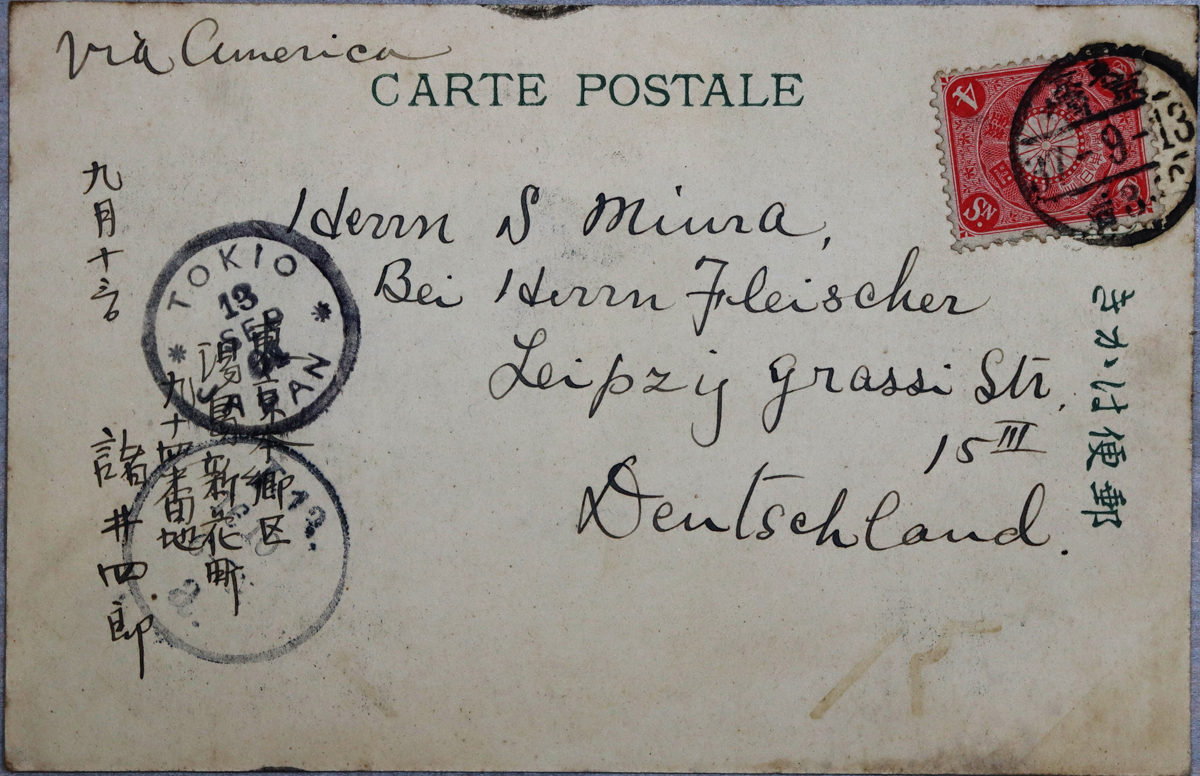 Via America
CARTE POSTALE
4
Sn
37-9-13
Herrn S Miura,
Bei Herrn Fleischer
Leipzig Grassi Str.
15 III
Deutschland.
きかは便郵
九月十三日
TOKIO
13
SEP
JAPAN
東京本郷区
湯島新花町
九十四番地
諸井四郎